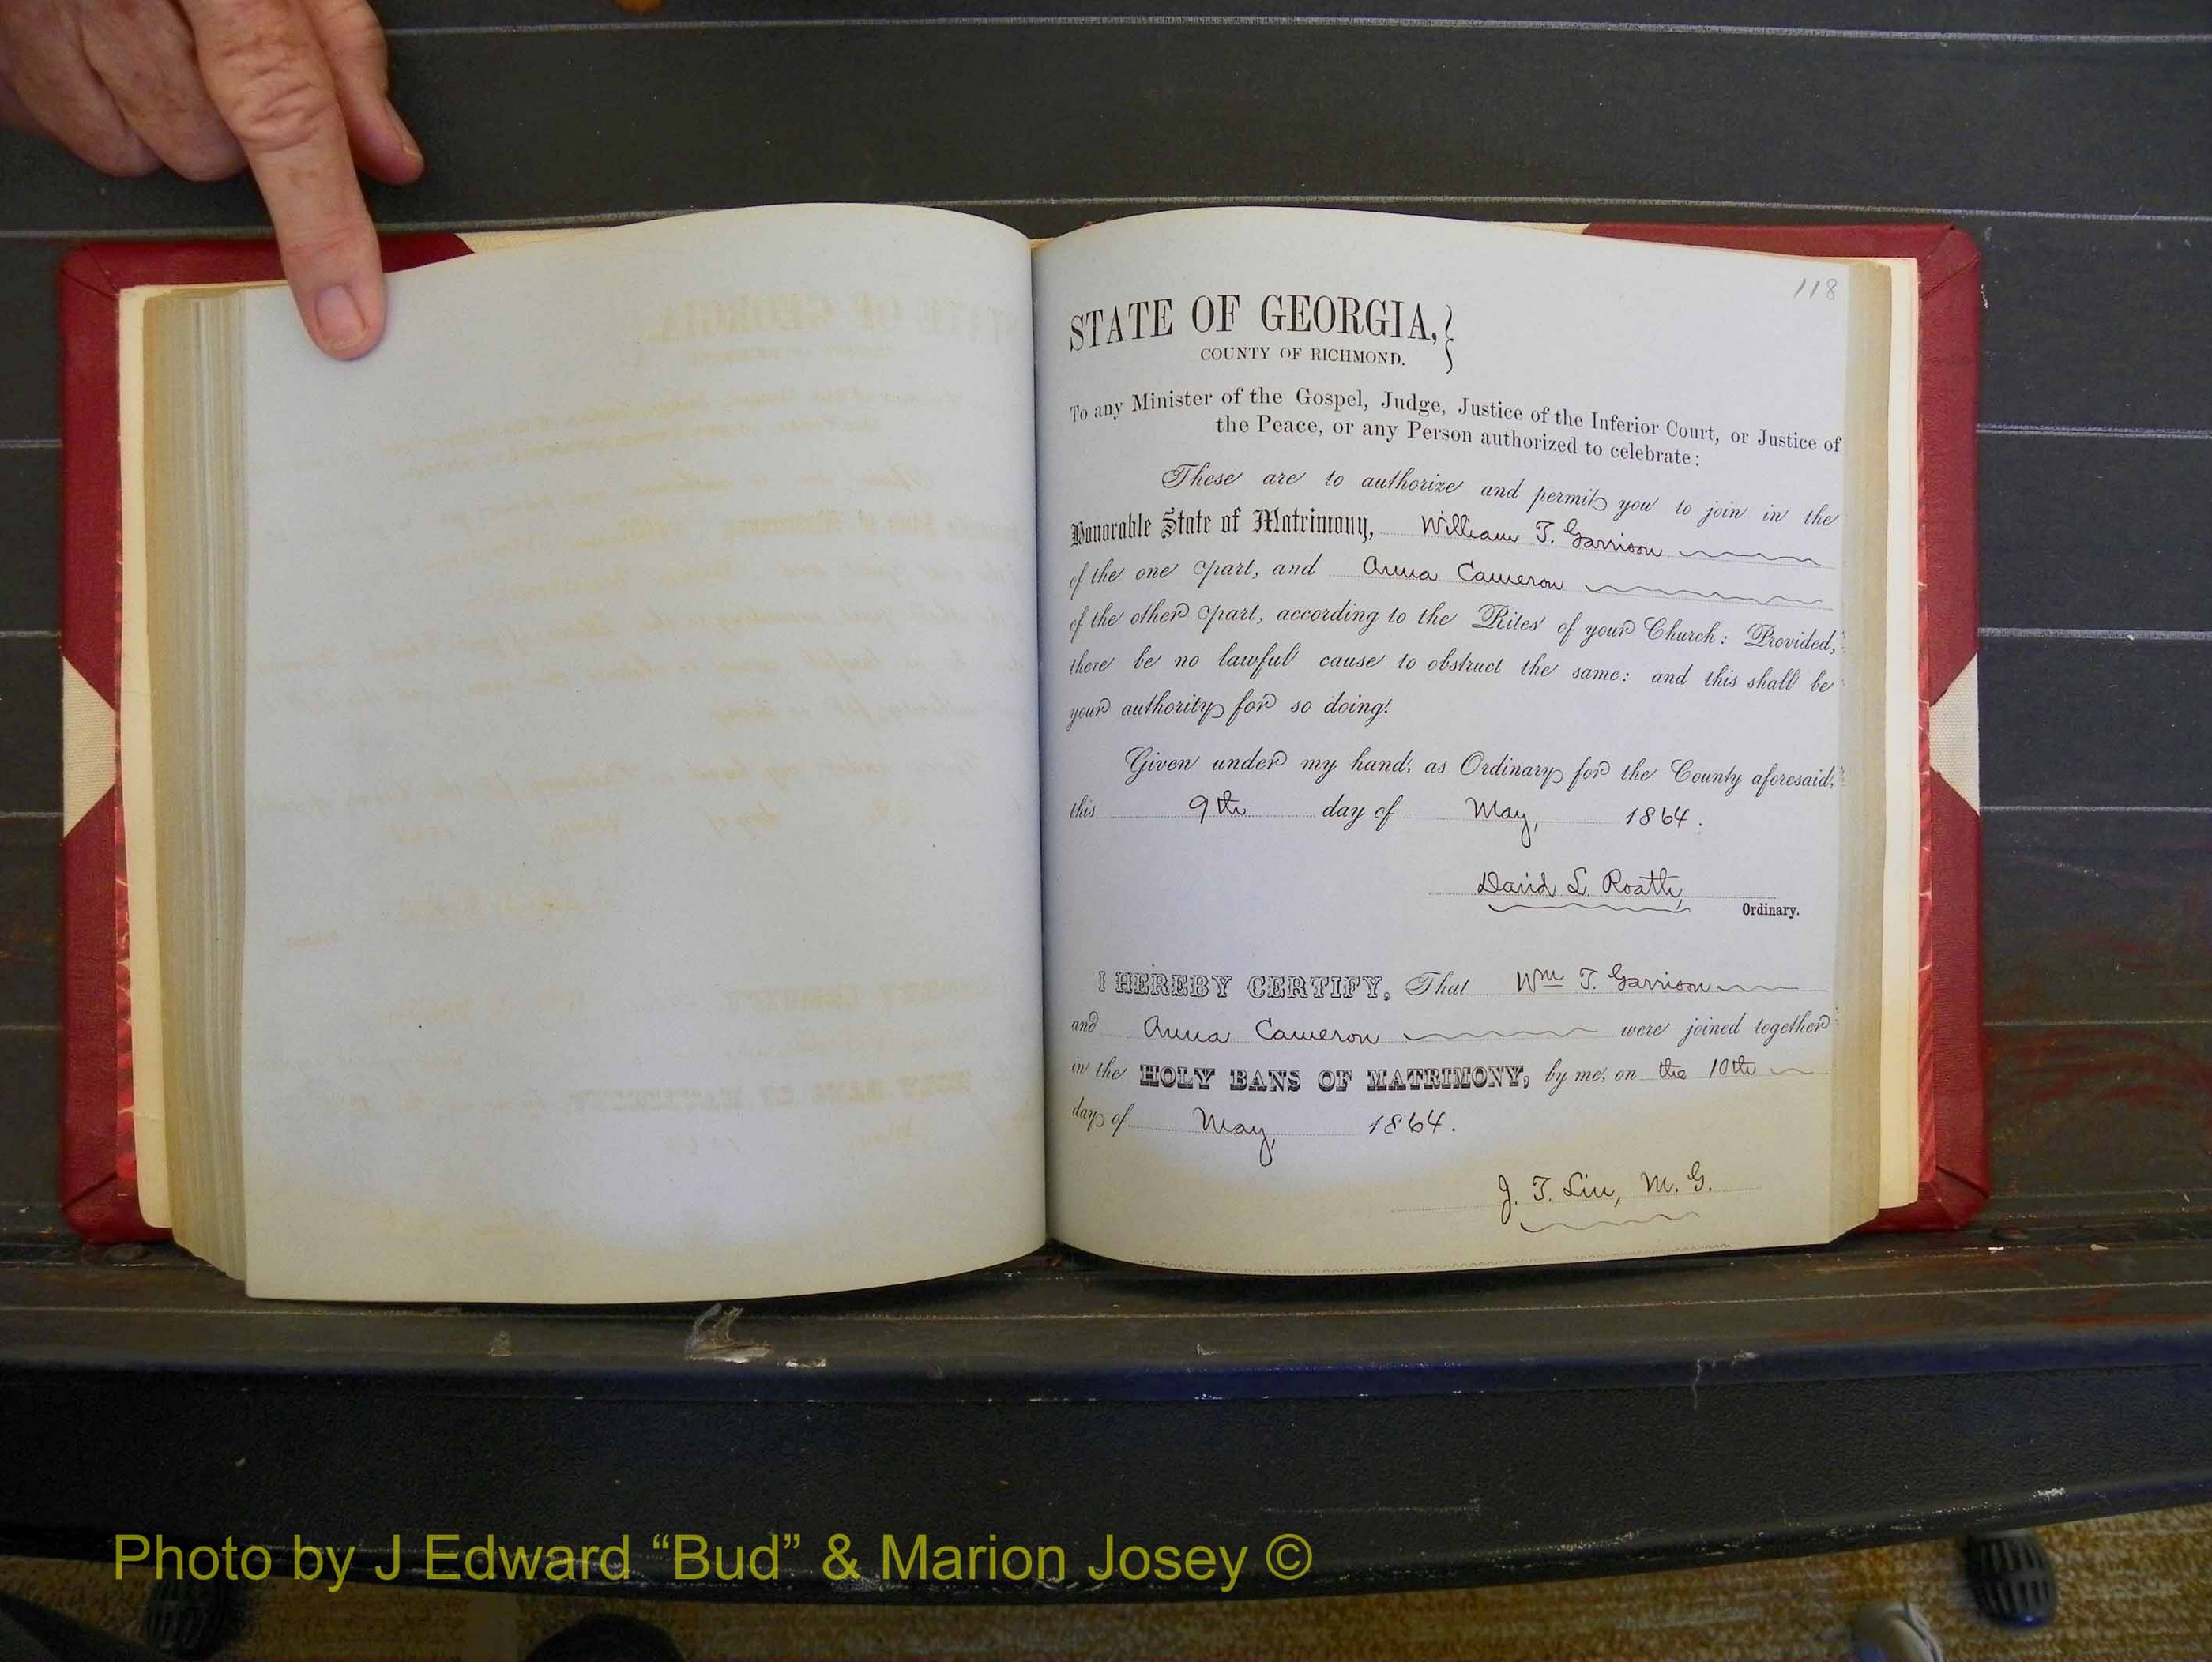 118
STATE OF GEORGIA,
COUNTY OF RICHMOND.
To any Minister of the Gospel, Judge, Justice of the Inferior Court, or Justice of
the Peace, or any Person authorized to celebrate:
These are to authorize and permit you to join in the
Honorable State of Matrimony, William T. Garrison
of the one part, and Anna Cameron
of the other part, according to the Rites of your Church: Provided,
there be no lawful cause to obstruct the same: and this shall be
your authority for so doing.
Given under my hand, as Ordinary for the County aforesaid,
this 9th day of May, 1864.
David L. Roath,
Ordinary.
I HEREBY CERTIFY, That Wm T. Garrison
and Anna Cameron were joined together
in the HOLY BANS OF MATRIMONY, by me, on the 10th
day of May, 1864.
J. T. Lin, M. G.
Photo by J Edward “Bud” & Marion Josey ©